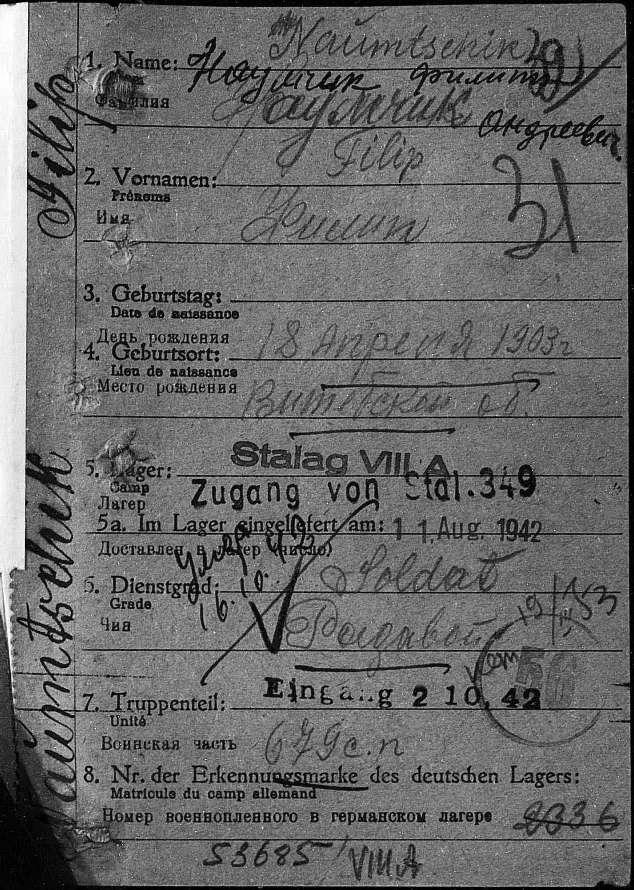 Naumtschik
1. Name:
Наумчик Филипп
Фамилия
Наумчик
Андреевич
Filip
2. Vornamen:
Prénoms
31
Имя
Филип
3. Geburtstag:
Date de naissance
День рождения
18 Апреля 1903 г
4. Geburtsort:
Lieu de naissance
Место рождения
Витебской об.
Stalag VIII A
5. Lager:
Camp
Zugang von Stal. 349
Лагерь
5a. Im Lager eingeliefert am: 11. Aug. 1942
Доставлен в лагер (число)
Умер
16.10.42
6. Dienstgrad: Soldat
Grade
Чин
Рядавой
19/IV 53
56
Eingang 2 10. 42
7. Truppenteil:
Unité
Воинская часть 679 с.п
8. Nr. der Erkennungsmarke des deutschen Lagers:
Matricule du camp allemand
Номер военнопленного в германском лагере 8336
53685/VIII A
Naumtschik Filip